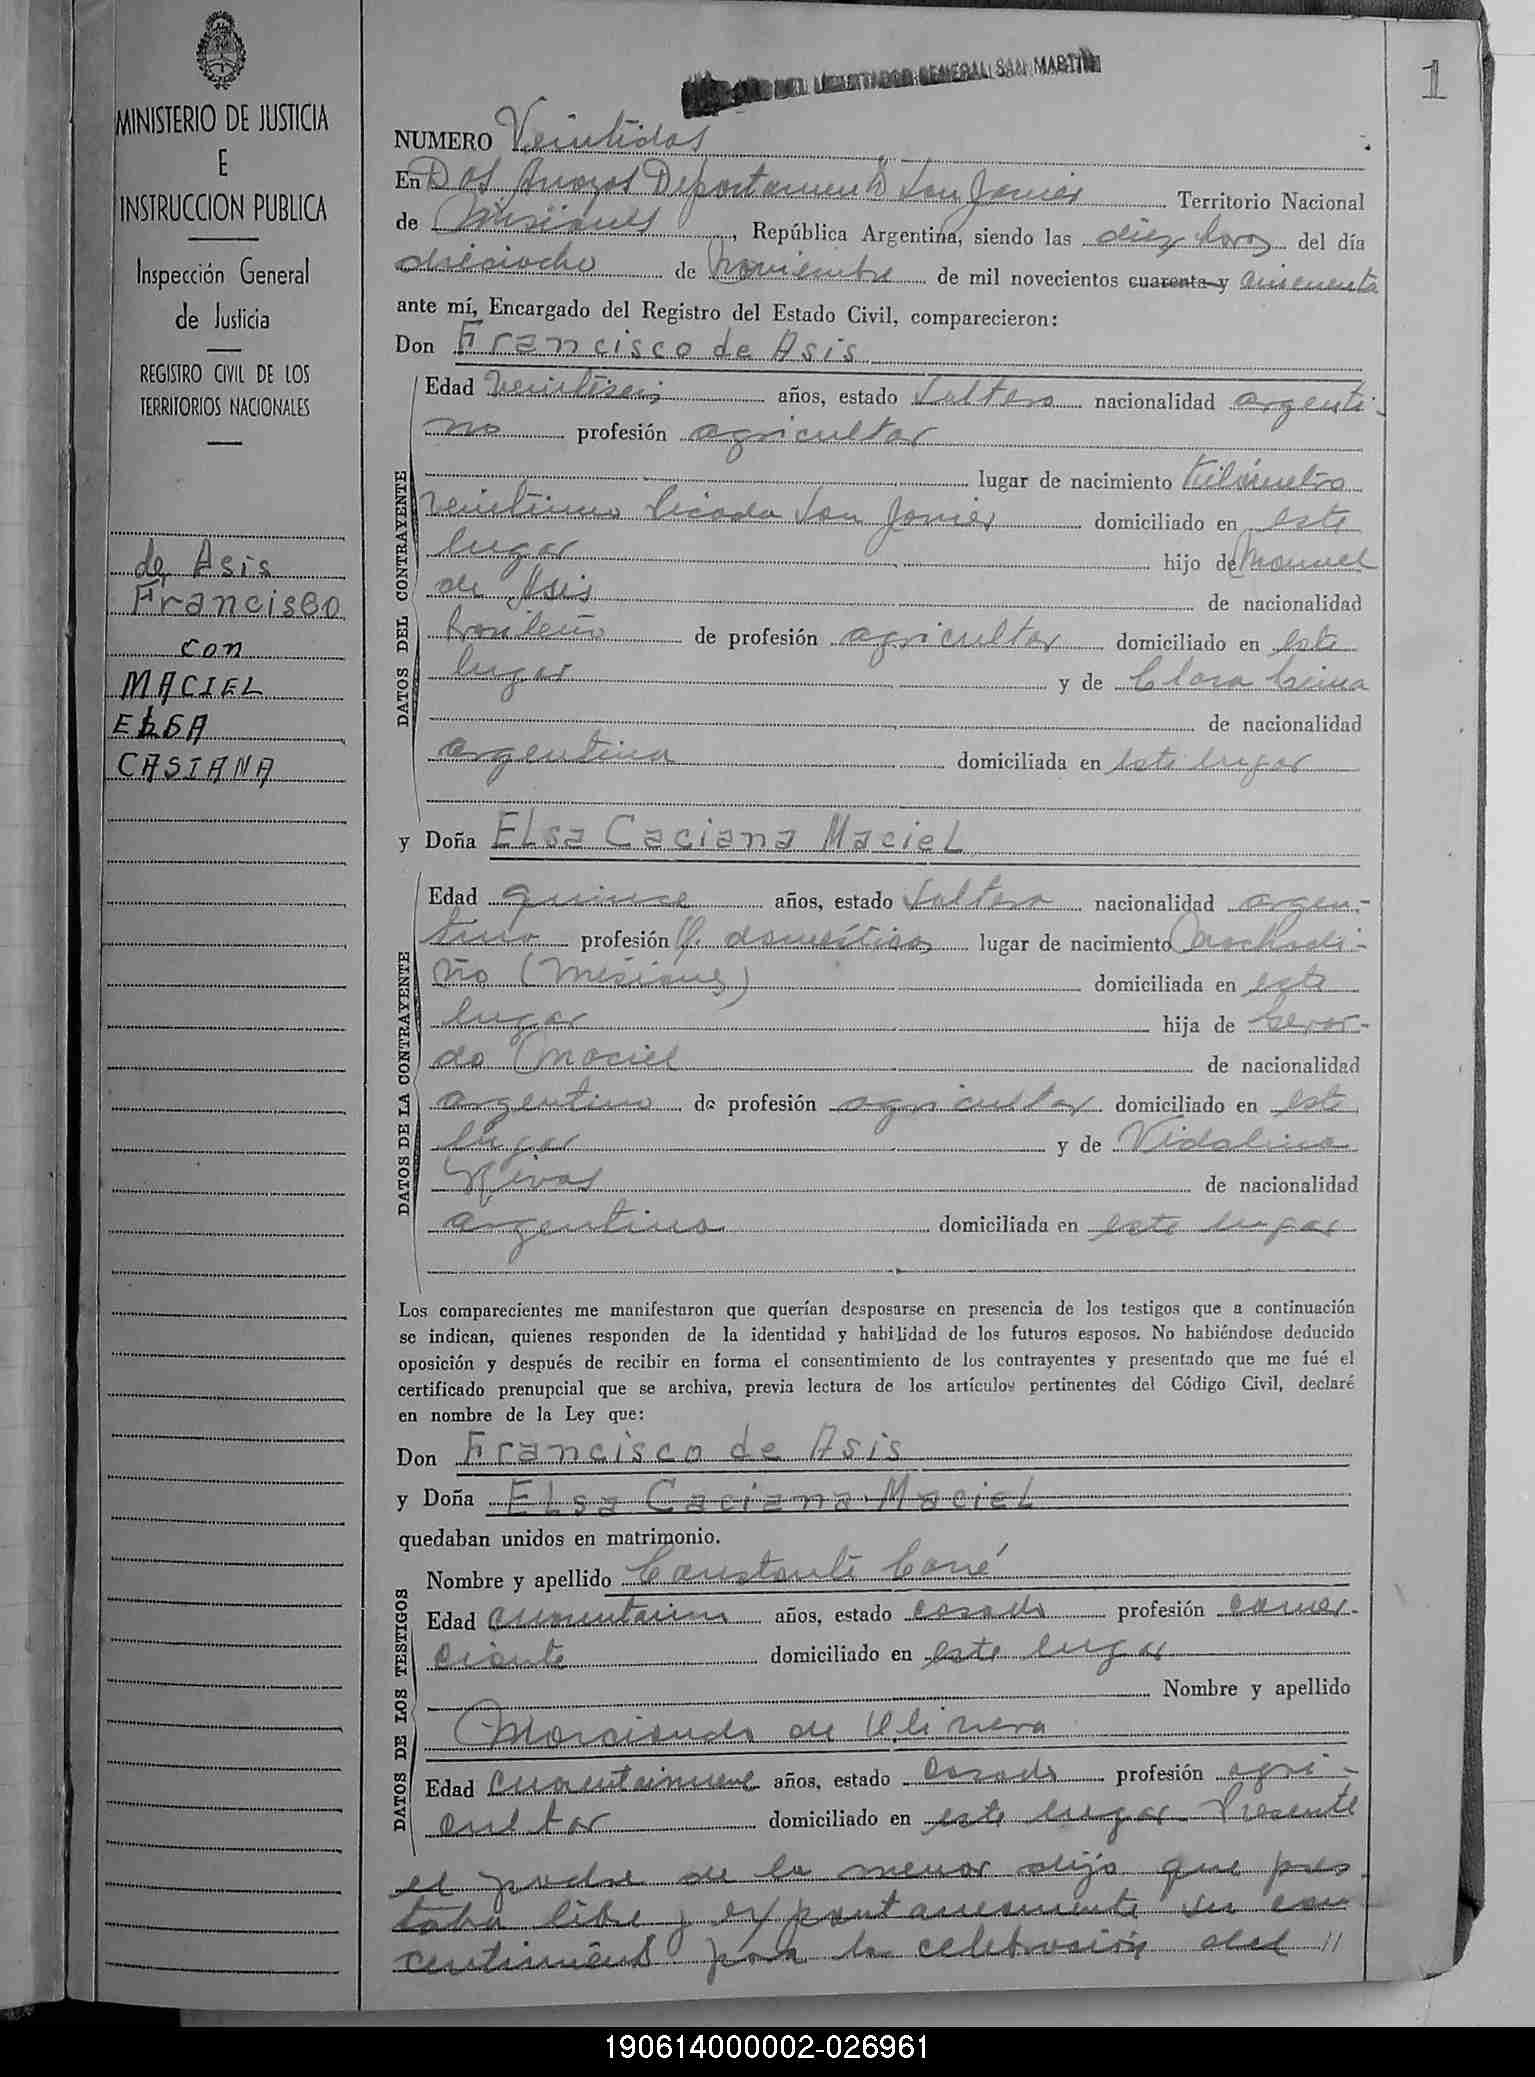 MINISTERIO DE JUSTICIA
E
INSTRUCCION PUBLICA
Inspección General
de Justicia
REGISTRO CIVIL DE LOS
TERRITORIOS NACIONALES
de Asis
Francisco
con
MACIEL
ELSA
CASIANA
DEL LIBERTADOR GENERAL SAN MARTIN
1
NUMERO Veintidos
En Dos Arroyos Departamento San Javier Territorio Nacional
de Misiones, República Argentina, siendo las diez horas del día
dieciocho de Noviembre de mil novecientos cuarenta y cincuenta
ante mí, Encargado del Registro del Estado Civil, comparecieron:
Don Francisco de Asis
DATOS DEL CONTRAYENTE
Edad veintiseis años, estado soltero nacionalidad argenti-
no profesión agricultor
lugar de nacimiento Kilómetro
veintiuno Picada San Javier domiciliado en este
lugar hijo de Manuel
de Asis de nacionalidad
brasileño de profesión agricultor domiciliado en este
lugar y de Clara
de nacionalidad
argentina domiciliada en este lugar
y Doña Elsa Caciana Maciel
DATOS DE LA CONTRAYENTE
Edad quince años, estado soltera nacionalidad argen-
tina profesión Q. domésticos lugar de nacimiento Mochadi-
ño (Misiones) domiciliada en este
lugar hija de Gerar-
do Maciel de nacionalidad
argentino de profesión agricultor domiciliado en este
lugar y de Vidalina
Rivas de nacionalidad
argentina domiciliada en este lugar
Los comparecientes me manifestaron que querían desposarse en presencia de los testigos que a continuación
se indican, quienes responden de la identidad y habilidad de los futuros esposos. No habiéndose deducido
oposición y después de recibir en forma el consentimiento de los contrayentes y presentado que me fué el
certificado prenupcial que se archiva, previa lectura de los artículos pertinentes del Código Civil, declaré
en nombre de la Ley que:
Don Francisco de Asis
y Doña Elsa Caciana Maciel
quedaban unidos en matrimonio.
DATOS DE LOS TESTIGOS
Nombre y apellido Constante
Edad años, estado casado profesión comer-
ciante domiciliado en este lugar
Nombre y apellido
Marciando de Olivera
Edad cuarentainueve años, estado casado profesión agri-
cultor domiciliado en este lugar Presente
el padre de la menor dijo que pres-
taba libre y expontaneamente su con
centimiento para la celebración del //
190614000002-026961